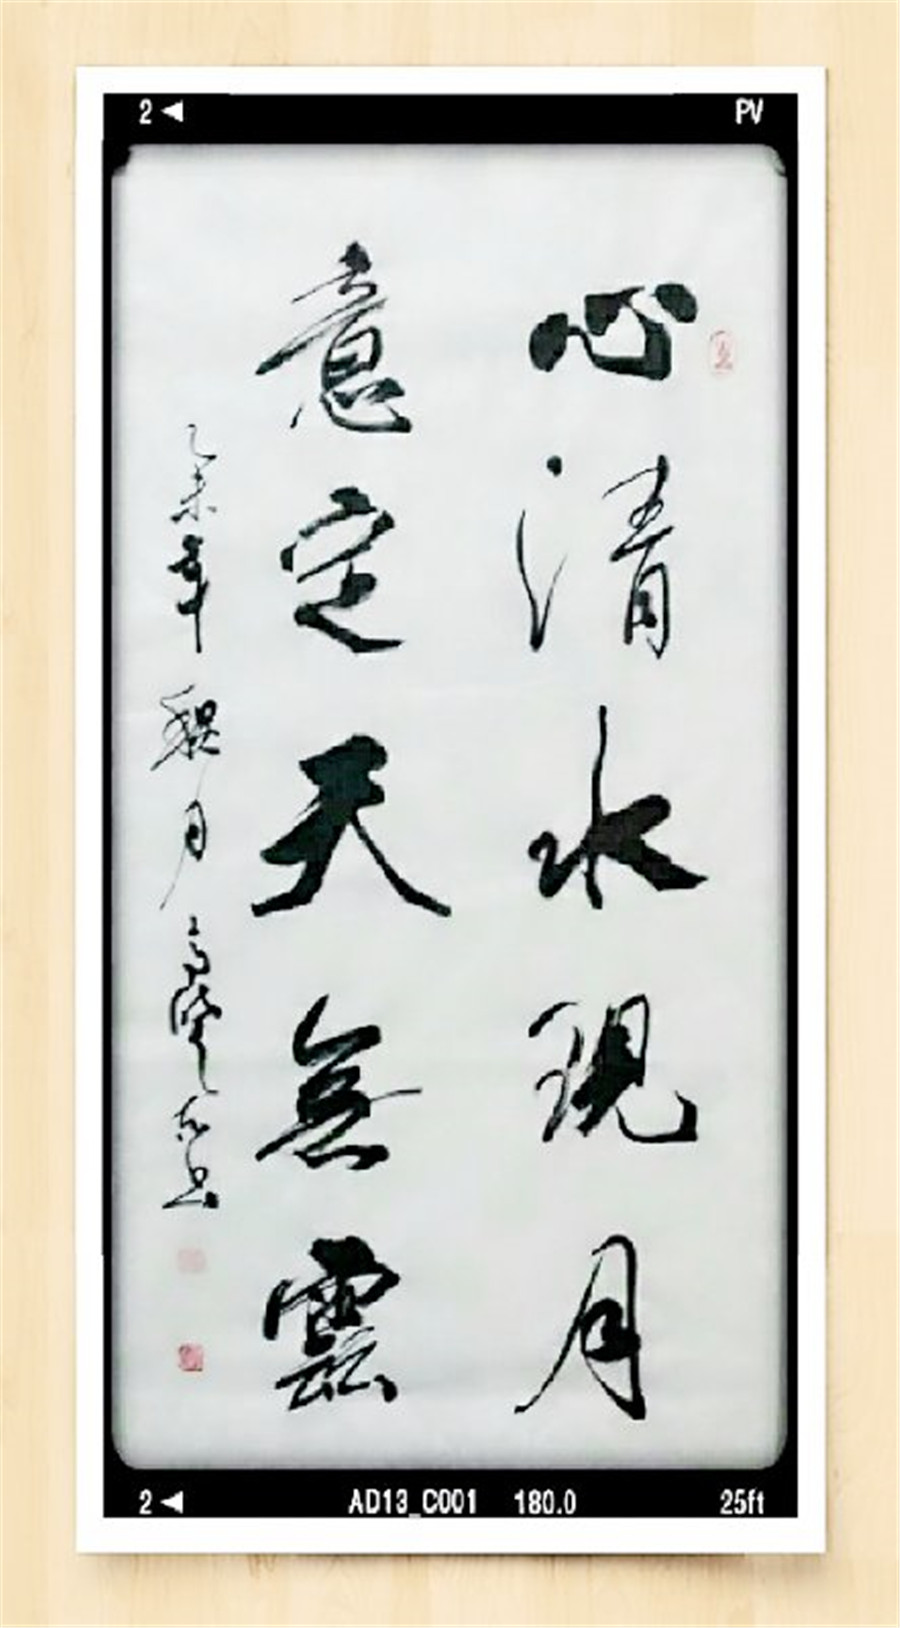 2 ◀ PV
心清水現月
意定天無雲
乙未年
月
2 ◀ AD13_C001 180.0 25ft